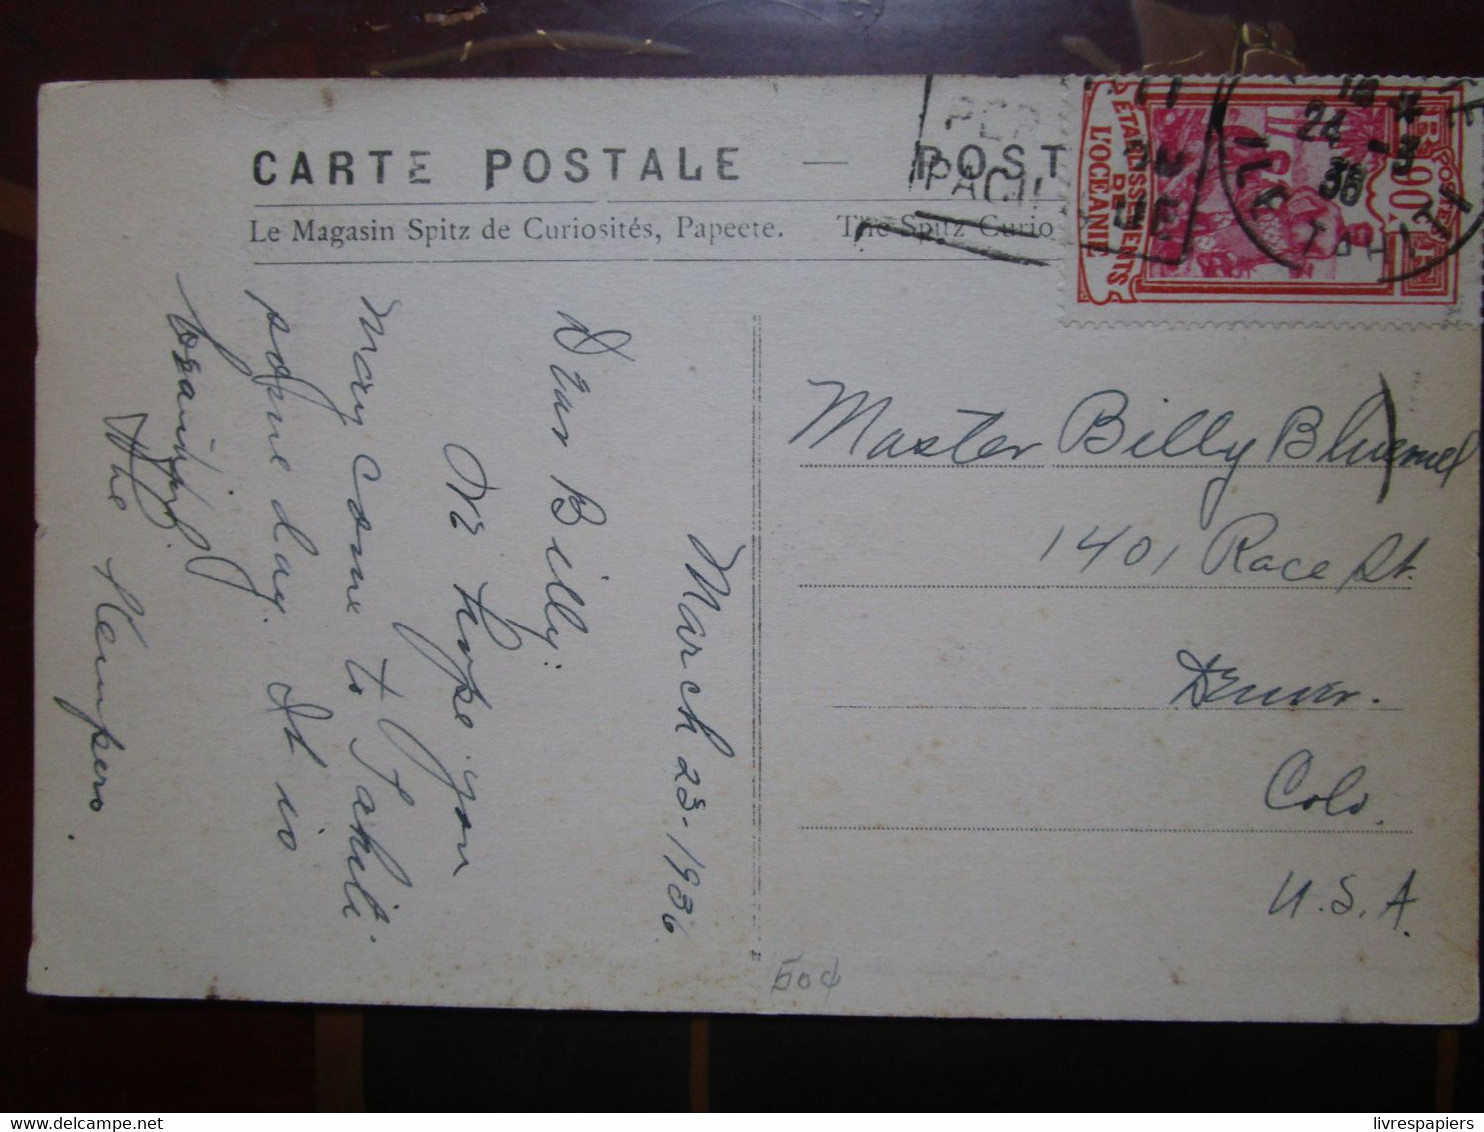 CARTE POSTALE — POST
Le Magasin Spitz de Curiosités, Papeete. The Spitz Curio
ÉTABLISSEMENTS
DE
L'OCÉANIE
POSTES
TAHITI
24 -3
36
March 23-1936
Dear Billy:
We hope you
may come to Tahiti
some day. It is
beautiful.
The Kempers.
Master Billy Bluemel
1401 Race St.
Denver.
Colo.
U.S.A.
50¢
livrespapiers